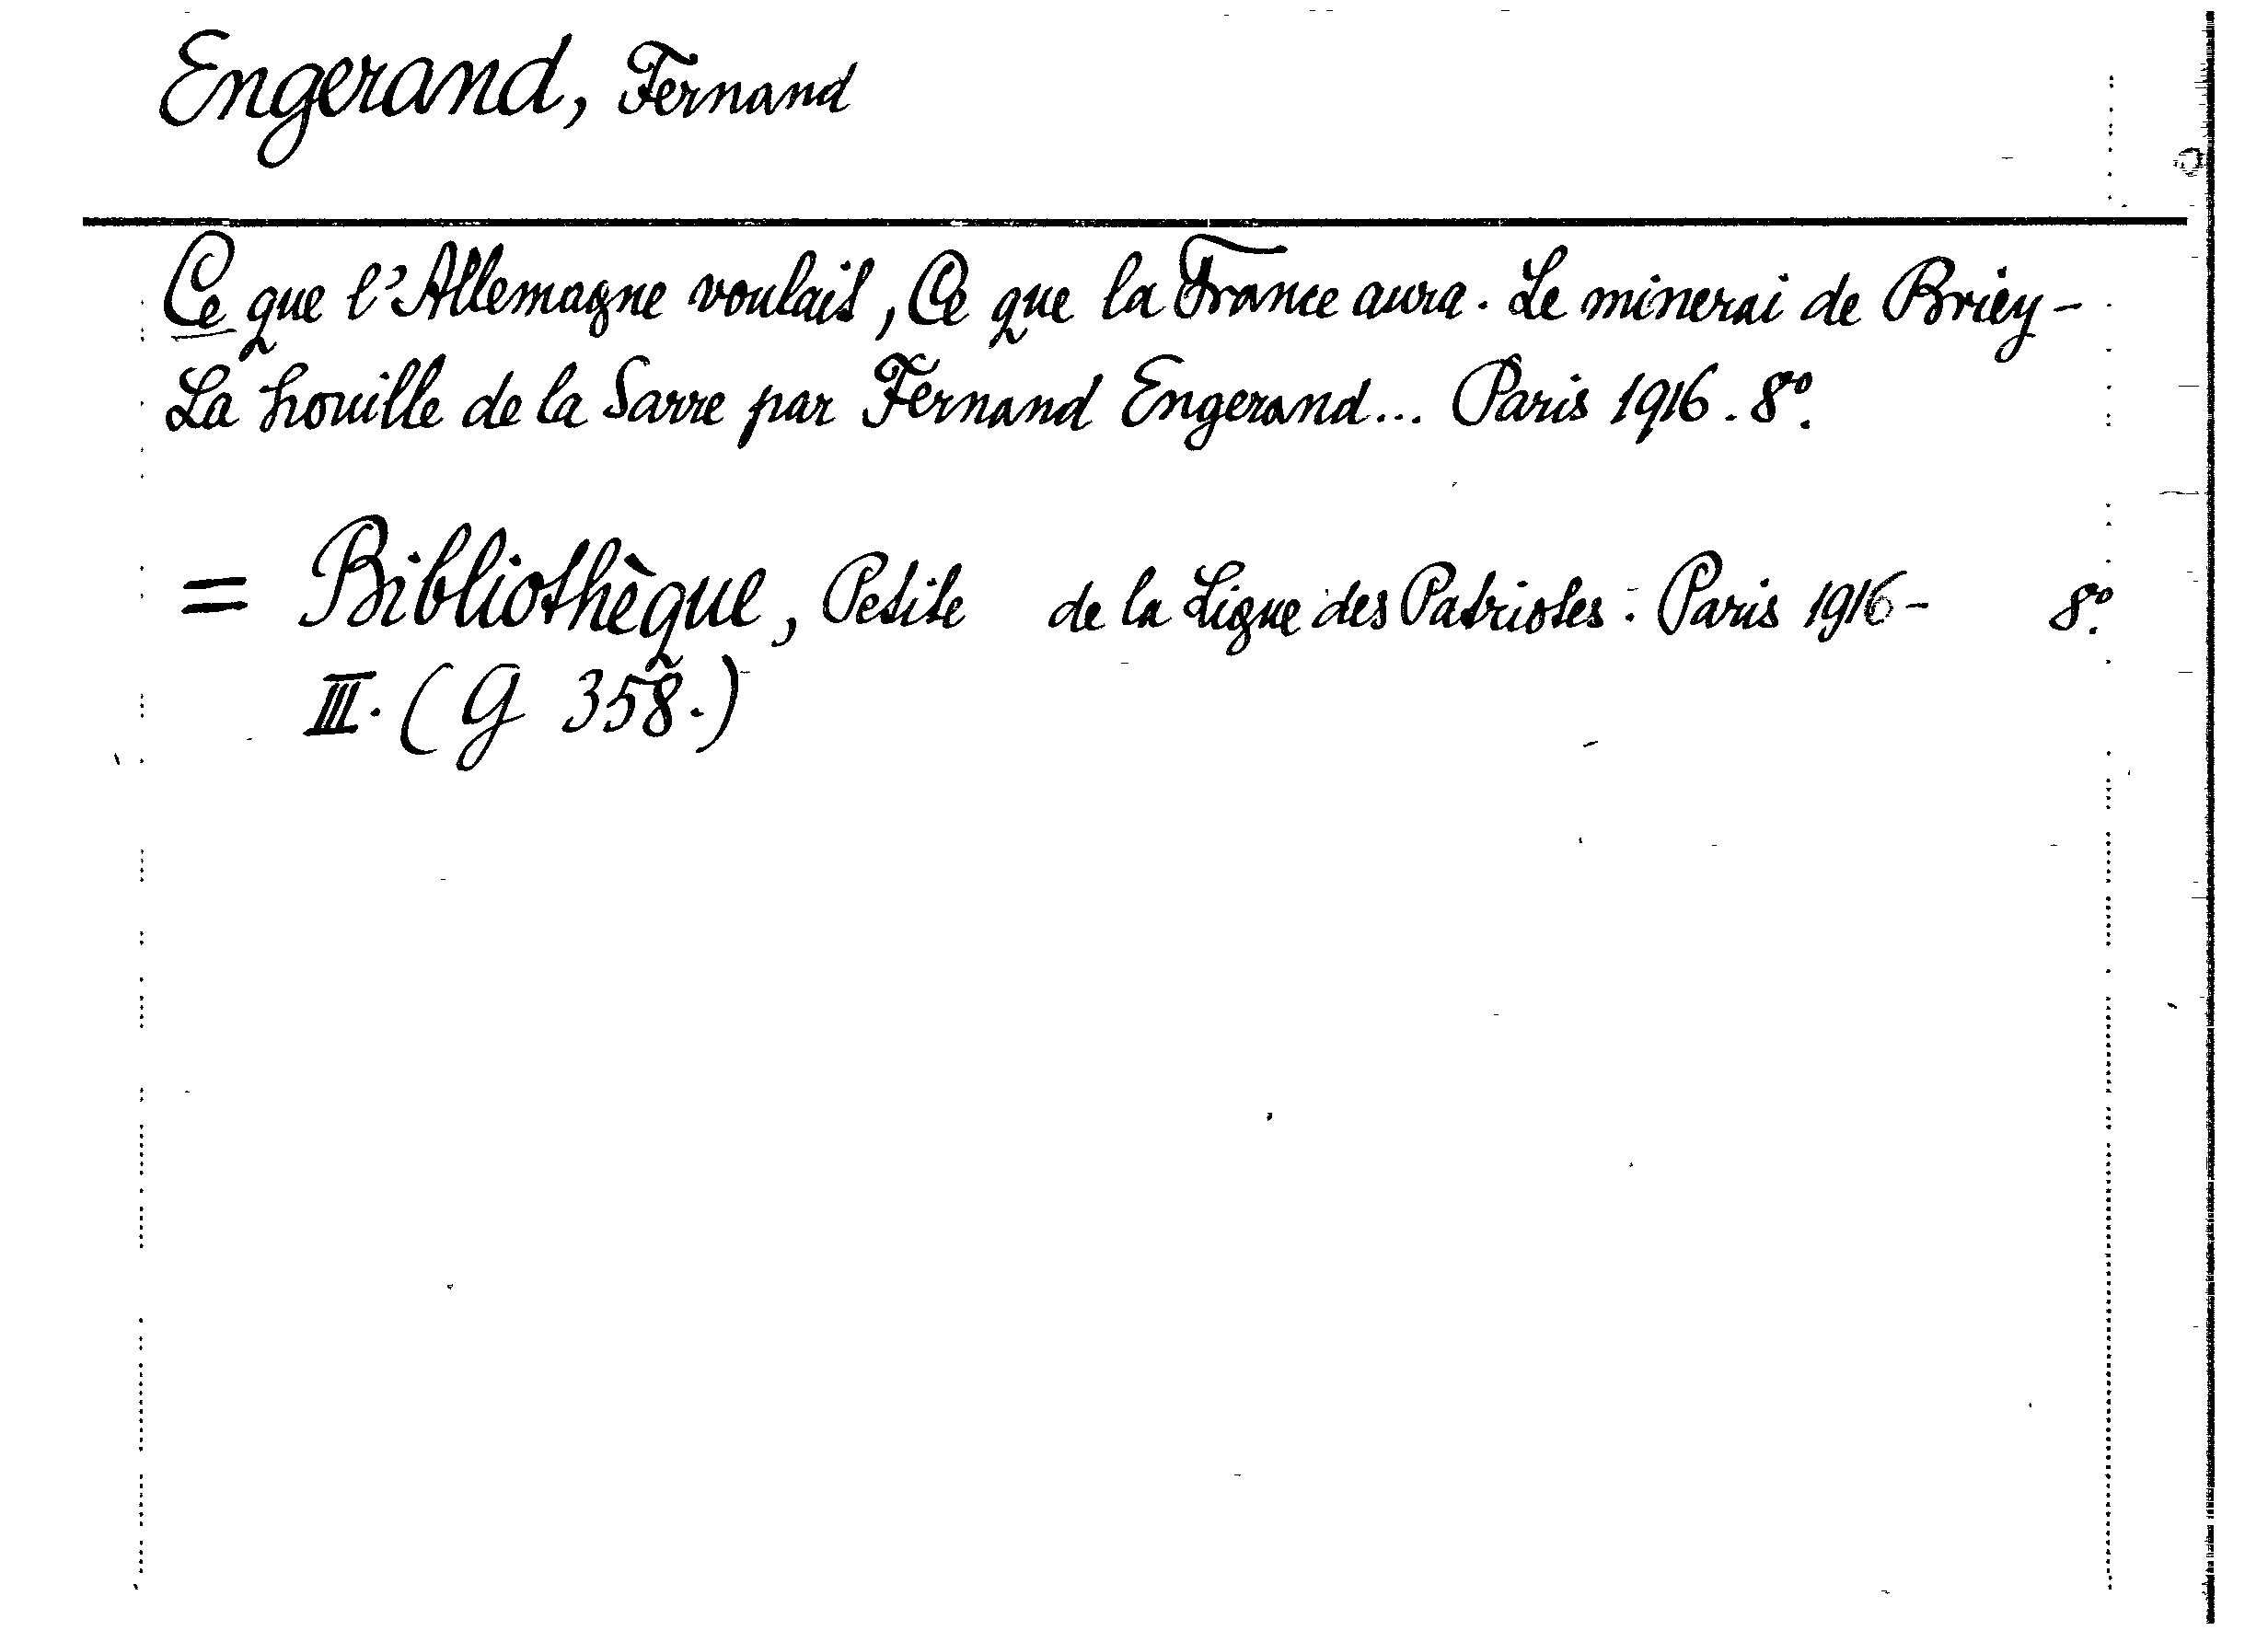 Engerand, Fernand
Ce que l'Allemagne voulait, Ce que la France aura. Le minerai de Briey -
La houille de la Sarre par Fernand Engerand... Paris 1916. 8º.
= Bibliothèque, Petite de la Ligue des Patriotes. Paris 1916- 8º.
III. (G 358.)